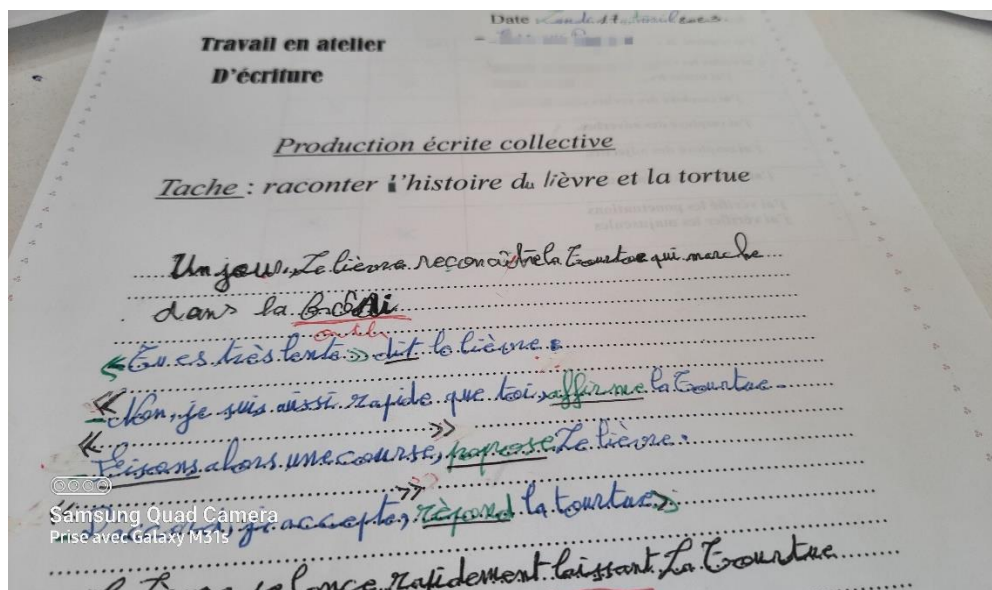 Date
Travail en atelier
D'écriture
Production écrite collective
Tache : raconter l'histoire du lièvre et la tortue
Un jour, Le lièvre la Tourtue qui marche
dans la
« Tu es très lente » dit le lièvre.
« Non, je suis aussi rapide que toi, affirme la Tourtue.
« Feisons alors une course, » propose Le lièvre.
j'accepte, » répond la tourtue »
rapidement laissant La Tourtue
Samsung Quad Camera
Prise avec Galaxy M31s